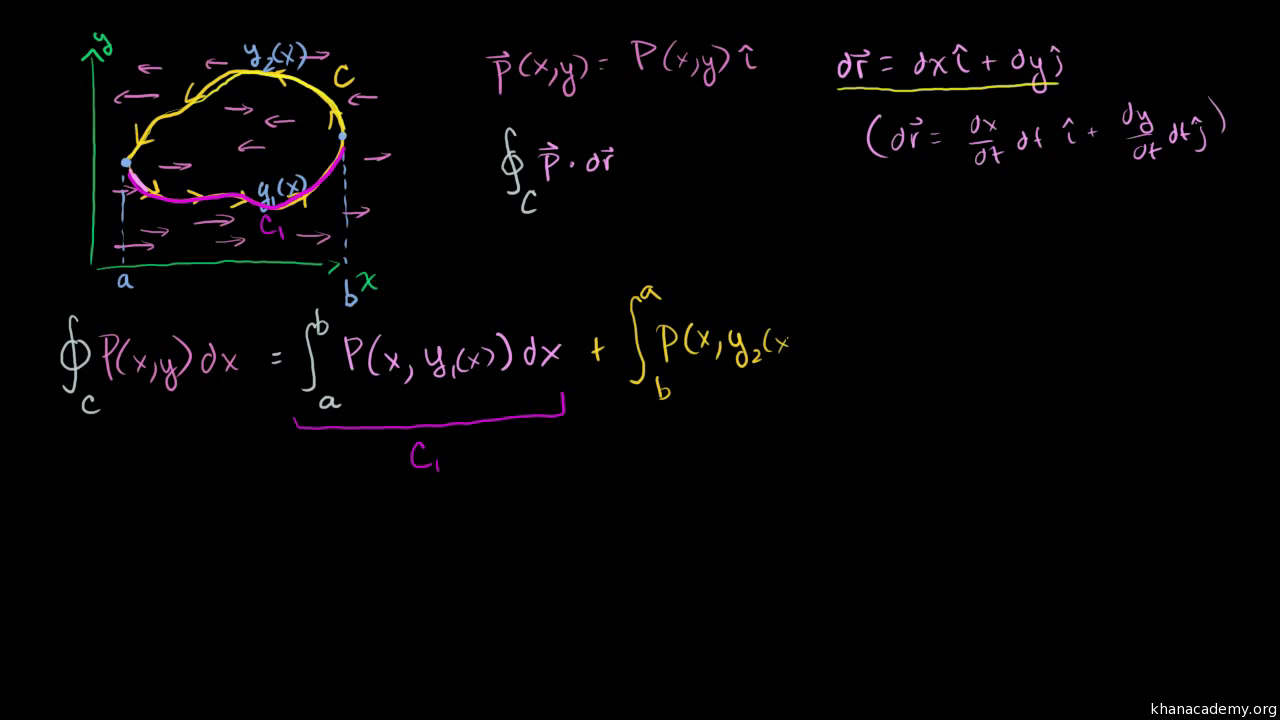 y
y₂(x)
C
y₁(x)
C₁
a
b
x
p⃗(x,y) = P(x,y) î
∮_C p⃗ · dr⃗
dr⃗ = dx î + dy ĵ
(dr⃗ = dx/dt dt î + dy/dt dt ĵ)
∮_C P(x,y) dx = ∫_a^b P(x, y₁(x)) dx + ∫_b^a P(x, y₂(x
C₁
khanacademy.org